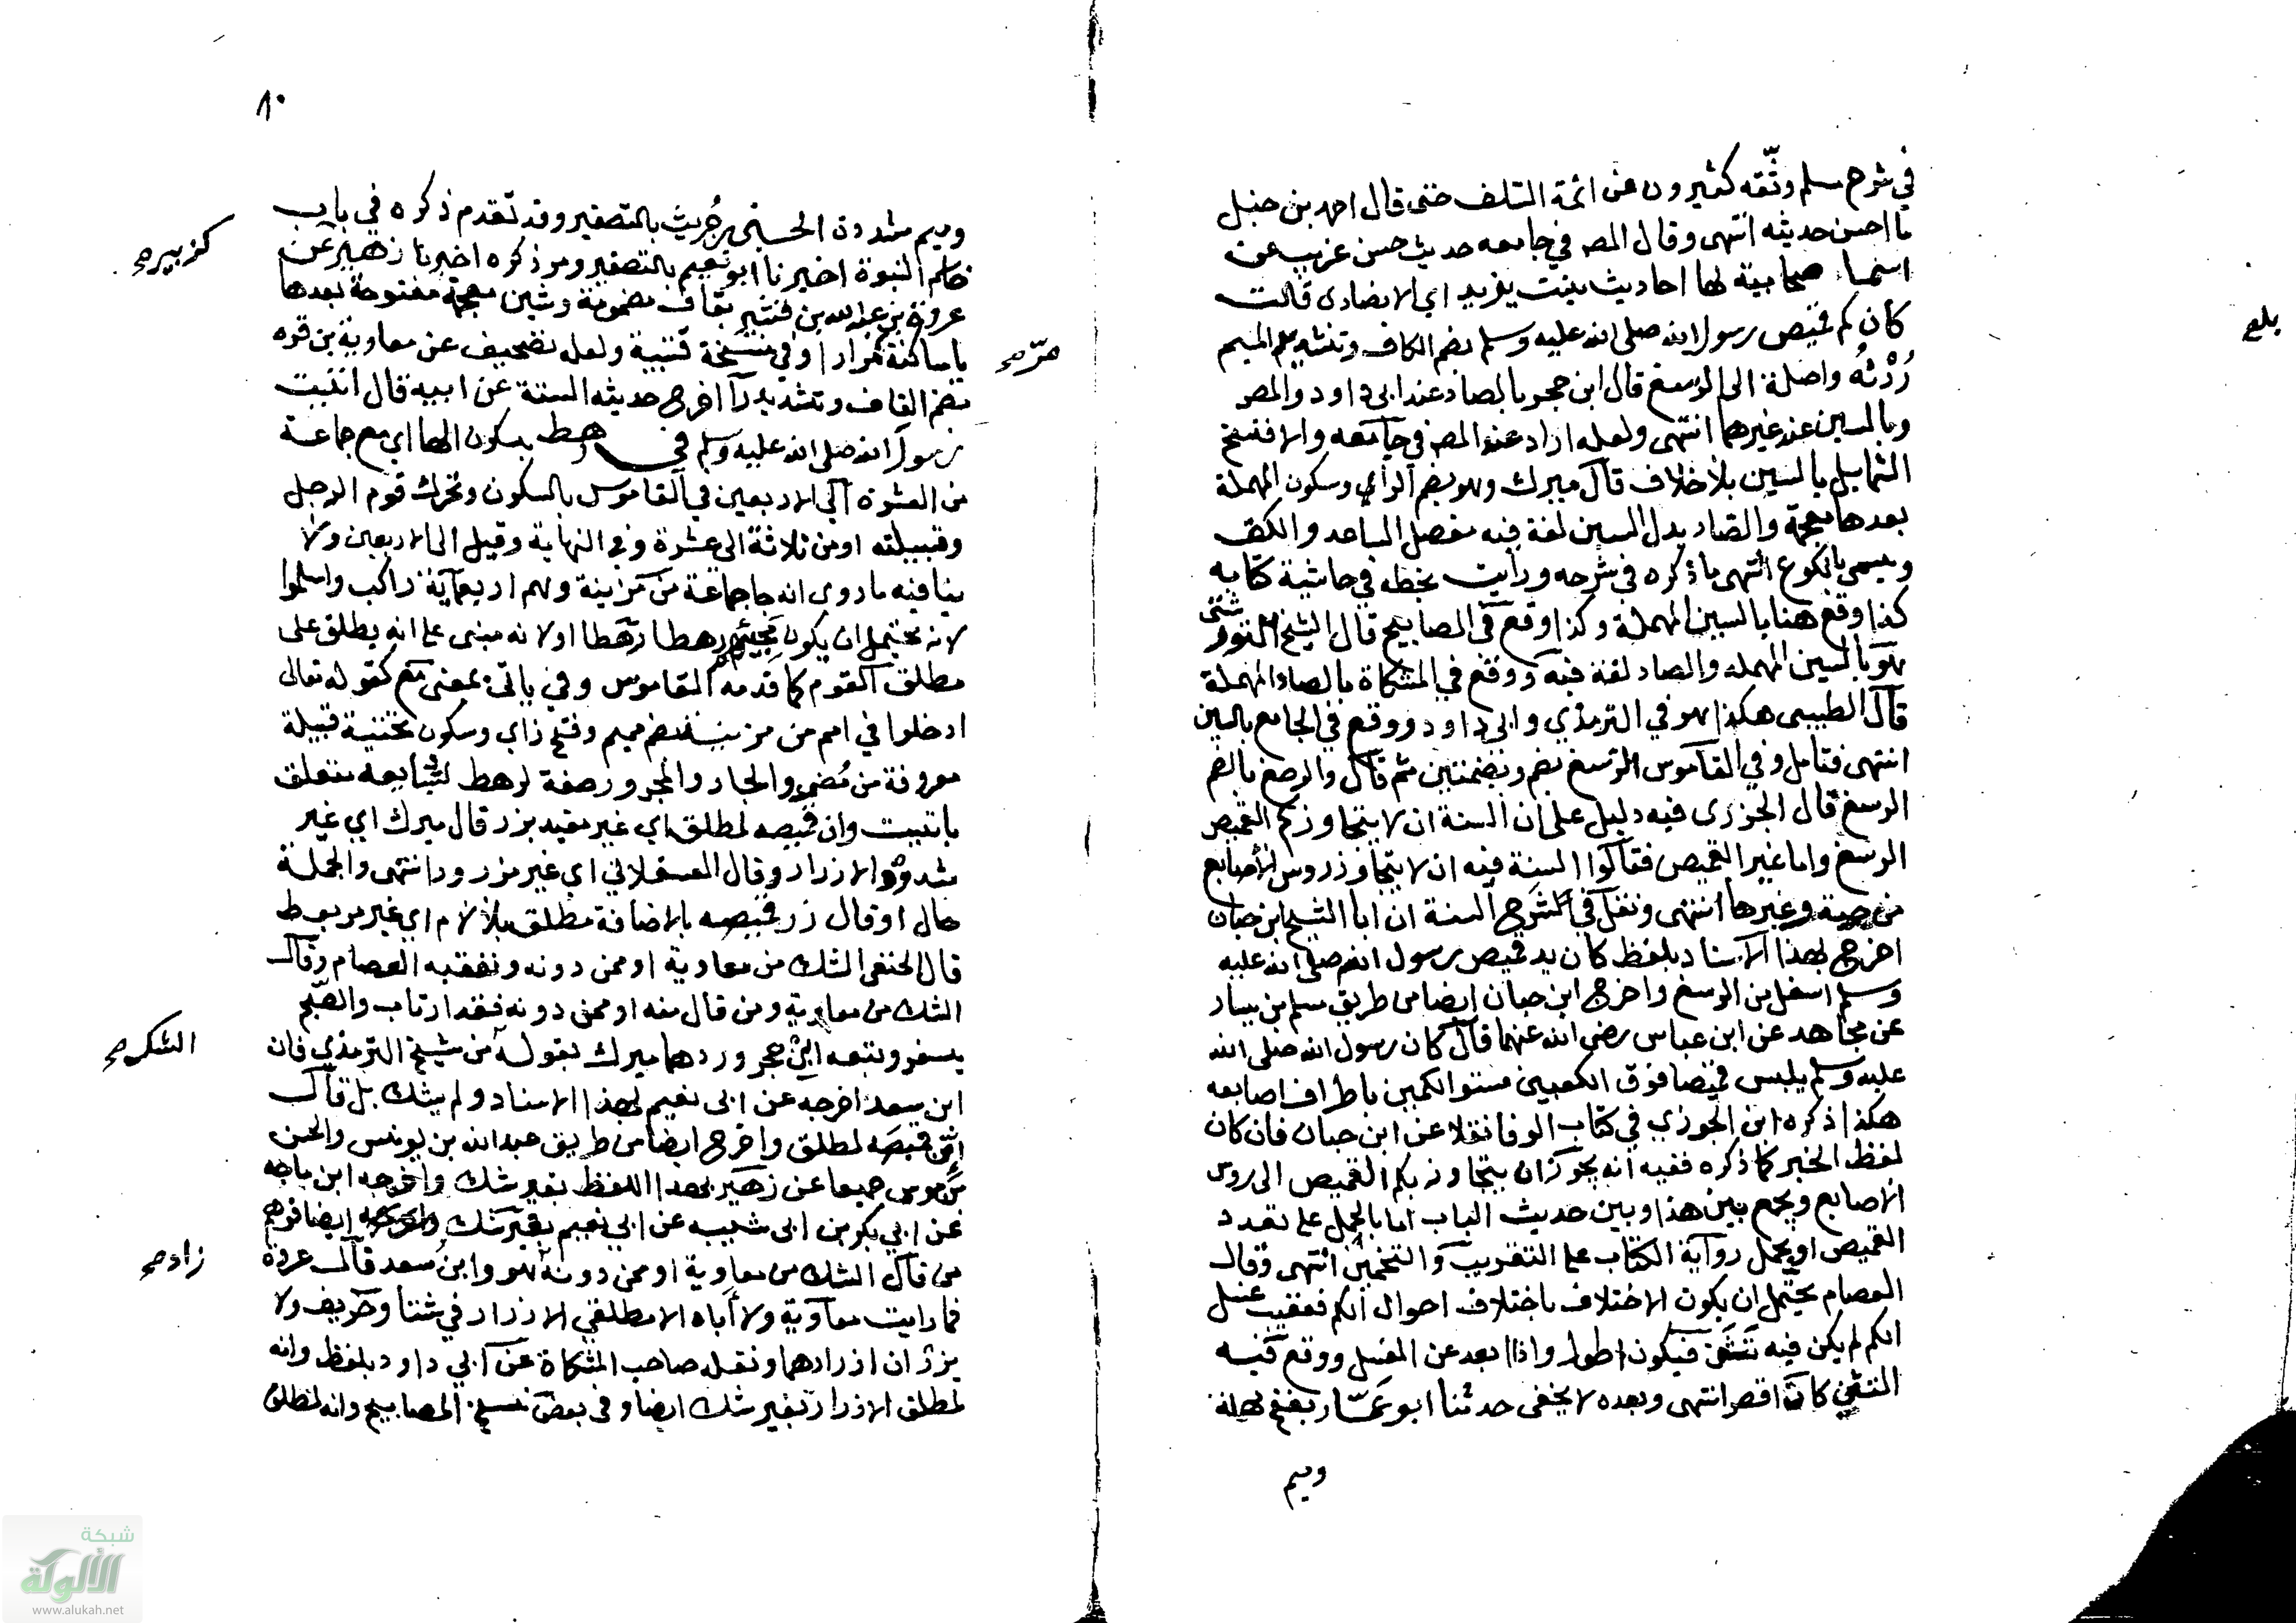 في شرح مسلم وثّقه كثيرون عن ائمة السلف حتى قال احمد بن حنبل
ما احسن حديثه انتهى وقال المص في جامعه حديث حسن غريب عن
اسماء صحابية لها احاديث بنت يزيد اي الانصارى قالت
كان كم قميص رسول الله صلى الله عليه وسلم بضم الكاف وتشديد الميم
رُدْنُه واصلة الى الرسغ قال ابن حجر بالصاد عند ابى داود والمص
وبالسين عند غيرهما انتهى ولعله اراد عند المص في جامعه والا فنسخ
الشمايل بالسين بلا خلاف قال ميرك وهو بضم الراي وسكون المهملة
بعدها معجمة والصاد بدل السين لغة فيه مفصل الساعد والكف
ويسمى بالكوع انتهى ما ذكره في شرحه ورايت بخطه في حاشية كتابه
كذا وقع هنا بالسين المهملة وكذا وقع في المصابيح قال الشيخ التوربشتى
هو بالسين المهمله والصاد لغة فيه ووقع في المشكاة بالصاد المهملة
قال الطيبى هكذا هو في الترمذي وابى داود ووقع في الجامع بالسين
انتهى فتامل وفي القاموس الرسغ بضم وبضمتين ثم قال والرصغ بالضم
الرسغ قال الجزرى فيه دليل على ان السنة ان لا يتجاوز كم القميص
الرسغ واما غير القميص فقالوا السنة فيه ان لا يتجاوز روس الاصابع
من جبة وغيرها انتهى ونقل في شرح السنة ان ابا الشيخ ابن حبان
اخرج بهذا الاسناد بلفظ كان يد قميص رسول الله صلى الله عليه
وسلم اسفل من الرسغ واخرج ابن حبان ايضا من طريق مسلم بن يسار
عن مجاهد عن ابن عباس رضي الله عنهما قال كان رسول الله صلى الله
عليه وسلم يلبس قميصا فوق الكعبين مستو الكمين باطراف اصابعه
هكذا ذكره ابن الجوزي في كتاب الوفا نقلا عن ابن حبان فان كان
لفظ الخبر كما ذكره ففيه انه يجوز ان يتجاوز بكم القميص الى روس
الاصابع ويجمع بين هذا وبين حديث الباب اما بالحمل على تعدد
القميص او بحمل رواية الكتاب على التقريب والتخمين انتهى وقال
العصام يحتمل ان يكون الاختلاف باختلاف احوال الكم فعقيب غسل
الكم لم يكن فيه تَثَنٍّ فيكون اطول واذا بعد عن الغسل ووقع فيه
التثني كان اقصر انتهى وبعده لا يخفى حدثنا ابو عمّار بفتح مهملة
وميم
بلغ
٨٠
وميم مشددة الحسين بن حُريث بالتصغير وقد تقدم ذكره في باب
خاتم النبوة اخبرنا ابو نعيم بالتصغير ومر ذكره اخبرنا زهير عن
عروة بن عبد الله بن قشير بقاف مضمومة وشين معجمة مفتوحة بعدها
يا ساكنة فرا وفي نسخة قتيبة ولعله تصحيف عن معاوية بن قره
بضم القاف وتشديد را اخرج حديثه الستة عن ابيه قال اتيت
رسول الله صلى الله عليه وسلم في رهط بسكون الها اي مع جماعة
من العشرة الى الاربعين في القاموس بالسكون وتحرك قوم الرجل
وقبيلته او من ثلاثة الى عشرة وفي النهاية وقيل الى الاربعين ولا
ينافيه ما روى انه جا جماعة من مزينة وهم اربعماية راكب واسلموا
لانه يحتمل ان يكون مجيئهم رهطا رهطا او لانه مبنى على انه يطلق على
مطلق القوم كما قدمه القاموس وفي ياتى بمعنى مع كقوله تعالى
ادخلوا في امم من مزينة بضم ميم وفتح زاي وسكون تحتية قبيلة
معروفة من مُضر والجار والمجرور صفة لرهط لنبايعه متعلق
باتيت وان قميصه لمطلق اي غير مقيد بزر قال ميرك اي غير
مشدود الازرار وقال العسقلاني اي غير مزرور انتهى والجملة
حال او قال زر قميصه بالاضافة مطلق بلا لام اي غير مربوط
قال الحنفى الشك من معاوية او ممن دونه وتعقبه العصام وقال
الشك من معاوية ومن قال منه او ممن دونه فقد ارتاب والصّبح
يسفر وتبعه ابن حجر وردهما ميرك بقوله من شيخ الترمذي فان
ابن سعد اخرجه عن ابى نعيم بهذا الاسناد ولم يشك بل قال
ان قميصه لمطلق واخرج ايضا من طريق عبد الله بن يونس والحسن
بن موسى جميعا عن زهير بهذا اللفظ بغير شك واخرجه ابن ماجه
عن ابي بكر بن ابى شيبه عن ابي نعيم بغير شك ايضا فوهم
من قال الشك من معاوية او ممن دونه هو وابن سعد قال عروة
فما رايت معاوية ولا اباه الا مطلقي الازرار في شتا وخريف ولا
يزران ازرارهما ونقله صاحب المشكاة عن ابي داود بلفظ وانه
لمطلق الازرار بغير شك ايضا وفى بعض نسخ المصابيح وانه لمطلق
كزبير صح
مرّ صح
الشك صح
زاد صح
شبكة
الألوكة
www.alukah.net